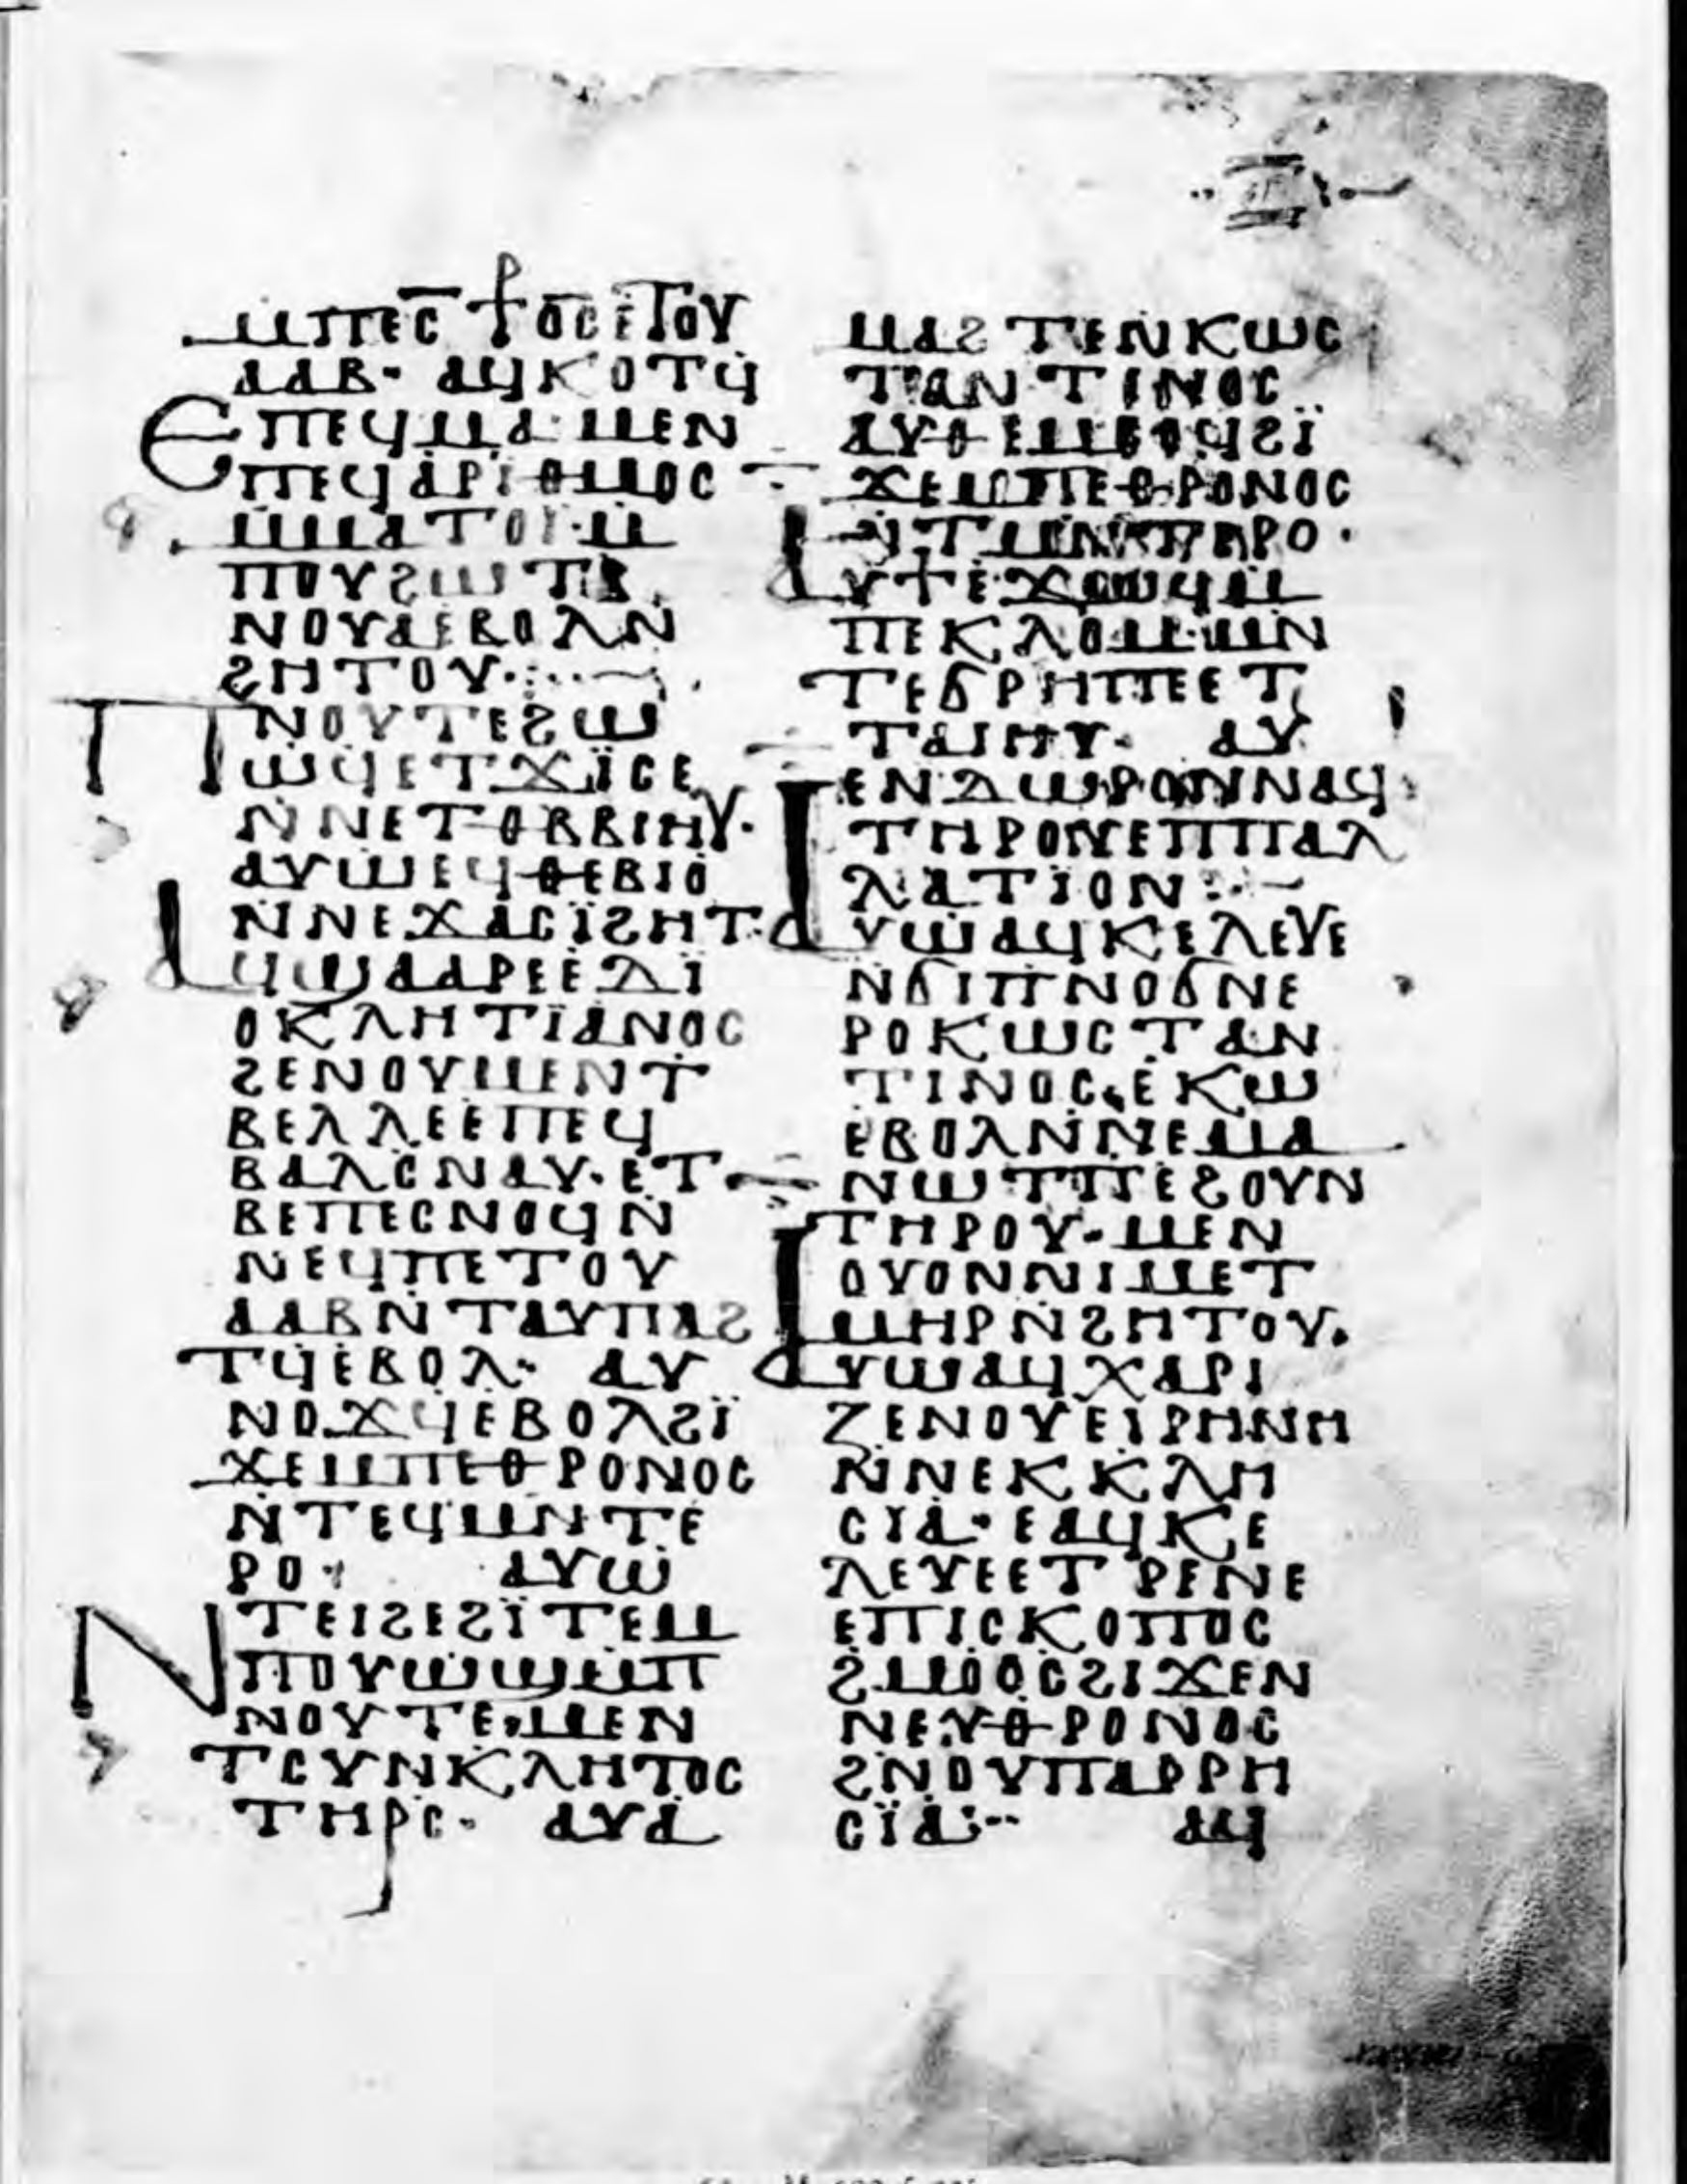 ⲙⲡⲉⲥ̅ⳁⲟ̅ⲥ̅ⲉⲧⲟⲩ
ⲁⲁⲃ· ⲁϥⲕⲟⲧϥ
ⲉⲡⲉϥⲙⲁ· ⲙⲉⲛ
ⲡⲉϥⲁⲣⲓⲑⲙⲟⲥ
ⲙⲙⲁⲧⲟⲓ·ⲙ
ⲡⲟⲩϩⲱⲧⲃ
ⲛⲟⲩⲁⲉⲃⲟⲗⲛ
ϩⲏⲧⲟⲩ·
ⲡⲛⲟⲩⲧⲉϩⲱ
ⲱϥⲉⲧϫⲓ̈ⲥⲉ
ⲛⲛⲉⲧⲑⲃⲃⲓⲏⲩ·
ⲁⲩⲱⲉϥⲑⲉⲃⲓⲟ
ⲛⲛⲉϫⲁⲥⲓ̈ϩⲏⲧ·
ⲁϥϣⲁⲁⲣⲉⲉⲇⲓ̈
ⲟⲕⲗⲏⲧⲓ̈ⲁⲛⲟⲥ
ϩⲉⲛⲟⲩⲙⲉⲛⲧ
ⲃⲉⲗⲗⲉⲉⲡⲉϥ
ⲃⲁⲗⲥⲛⲁⲩ·ⲉⲧ
ⲃⲉⲡⲉⲥⲛⲟϥⲛ
ⲛⲉϥⲡⲉⲧⲟⲩ
ⲁⲁⲃⲛⲧⲁⲩⲡⲁϩ
ⲧϥⲉⲃⲟⲗ· ⲁⲩ
ⲛⲟϫϥⲉⲃⲟⲗϩⲓ̈
ϫⲉⲙⲡⲉⲑⲣⲟⲛⲟⲥ
ⲛⲧⲉϥⲙⲛⲧⲉ
ⲣⲟ· ⲁⲩⲱ
ⲛⲧⲉⲓϩⲉϩⲓ̈ⲧⲉⲙ
ⲡⲟⲩⲱϣⲙⲡ
ⲛⲟⲩⲧⲉ·ⲙⲉⲛ
ⲧⲥⲩⲛⲕⲗⲏⲧⲟⲥ
ⲧⲏⲣⲥ· ⲁⲩⲁ
ⲙⲁϩⲧⲉⲛⲕⲱⲥ
ⲧⲁⲛⲧⲓⲛⲟⲥ
ⲁⲩⲑⲉⲙⲥⲟϥϩⲓ̈
ϫⲉⲙⲡⲉⲑⲣⲟⲛⲟⲥ
ⲛⲧⲙⲛⲧⲣⲣⲟ·
ⲁⲩϯⲉϫⲱϥⲙ
ⲡⲉⲕⲗⲟⲙ·ⲙⲛ
ⲧⲉϭⲣⲏⲡⲉⲉⲧ
ⲧⲁⲓⲏⲩ· ⲁⲩ
ⲉⲛⲇⲱⲣⲟⲛⲛⲁϥ
ⲧⲏⲣⲟⲩⲉⲡⲡⲁⲗ
ⲗⲁⲧⲓ̈ⲟⲛ·
ⲁⲩⲱⲁϥⲕⲉⲗⲉⲩⲉ
ⲛϭⲓⲡⲛⲟϭⲛⲉ
ⲣⲟⲕⲱⲥⲧⲁⲛ
ⲧⲓⲛⲟⲥ·ⲉⲕⲱ
ⲉⲃⲟⲗⲛⲛⲉⲙⲁ
ⲛⲱⲧⲡⲉϩⲟⲩⲛ
ⲧⲏⲣⲟⲩ·ⲙⲉⲛ
ⲟⲩⲟⲛⲛⲓⲙⲉⲧ
ⲙⲏⲣⲛϩⲏⲧⲟⲩ·
ⲁⲩⲱⲁϥⲭⲁⲣⲓ
ⲍⲉⲛⲟⲩⲉⲓⲣⲏⲛⲏ
ⲛⲛⲉⲕⲕⲗⲏ
ⲥⲓ̈ⲁ·ⲉⲁϥⲕⲉ
ⲗⲉⲩⲉⲉⲧⲣⲉⲛⲉ
ⲉⲡⲓⲥⲕⲟⲡⲟⲥ
ϩⲙⲟⲟⲥϩⲓϫⲉⲛ
ⲛⲉⲩⲑⲣⲟⲛⲟⲥ
ϩⲛⲟⲩⲡⲁⲣⲣⲏ
ⲥⲓ̈ⲁ· ⲁϥ